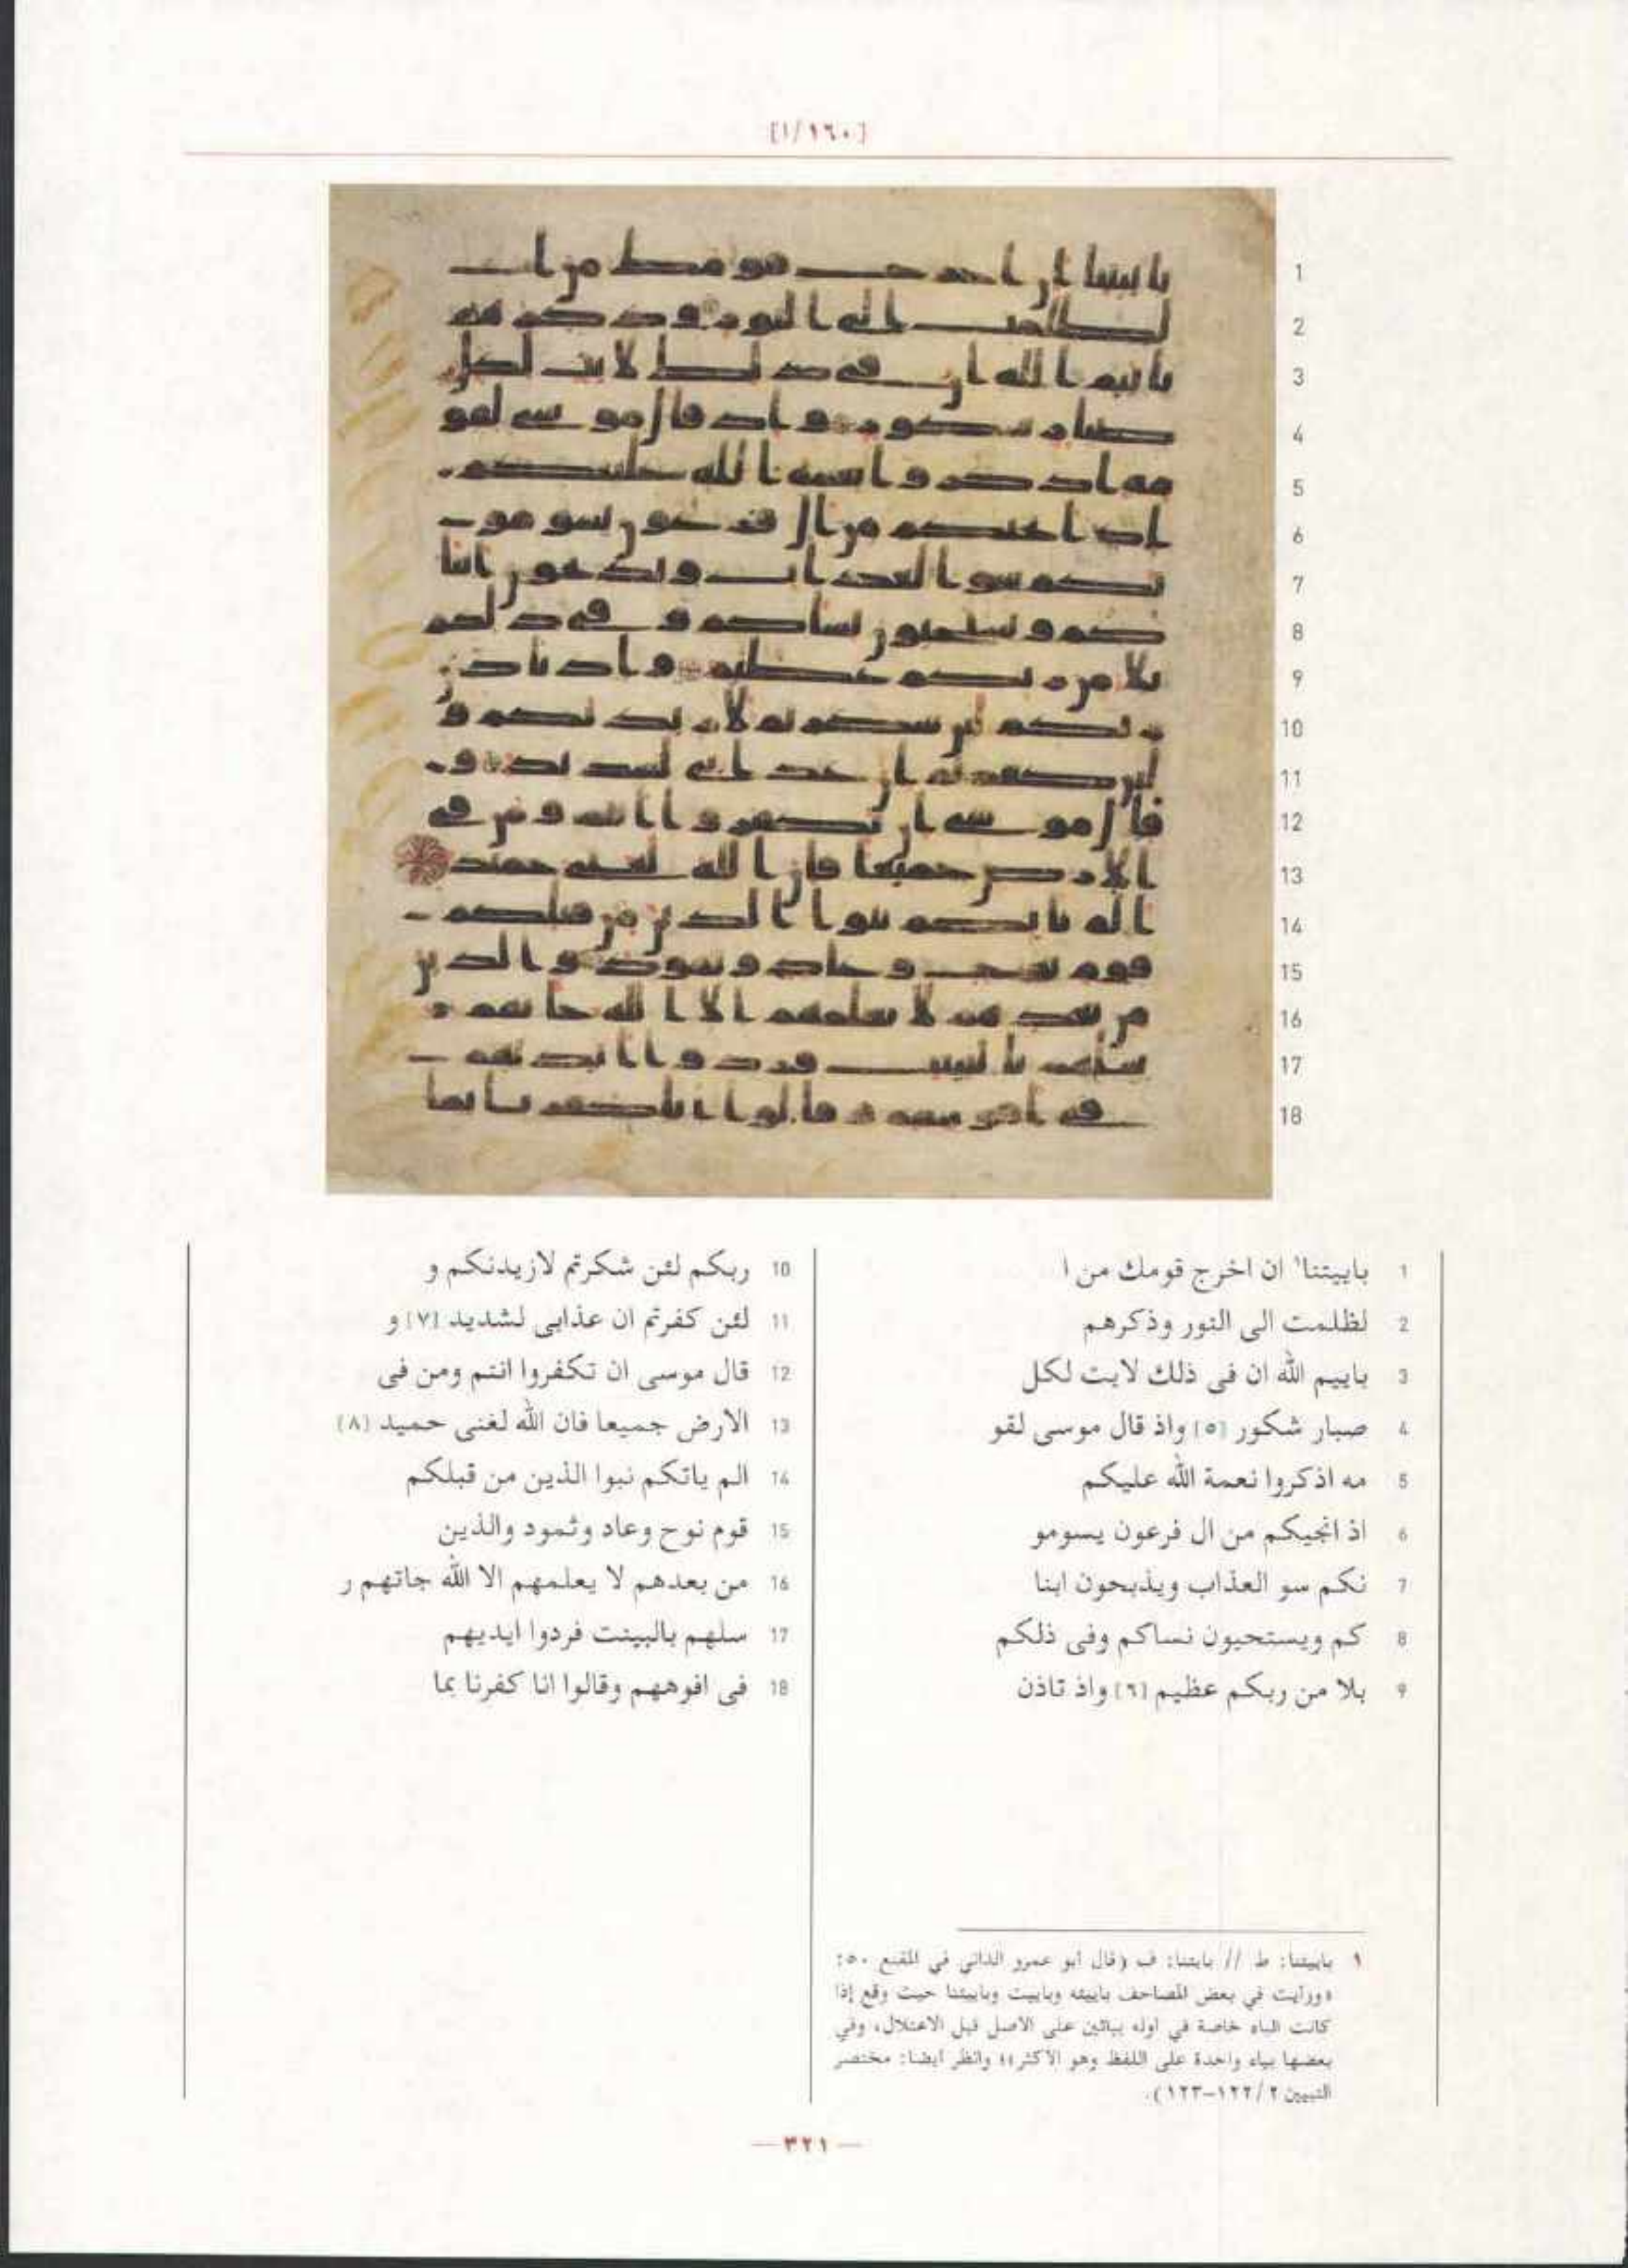 [١/١٦٠]
1
2
3
4
5
6
7
8
9
10
11
12
13
14
15
16
17
18
1 باييتنا١ ان اخرج قومك من ا
2 لظلمت الى النور وذكرهم
3 باييم الله ان فى ذلك لايت لكل
4 صبار شكور [٥] واذ قال موسى لقو
5 مه اذكروا نعمة الله عليكم
6 اذ انجيكم من ال فرعون يسومو
7 نكم سو العذاب ويذبحون ابنا
8 كم ويستحيون نساكم وفى ذلكم
9 بلا من ربكم عظيم [٦] واذ تاذن
10 ربكم لئن شكرتم لازيدنكم و
11 لئن كفرتم ان عذابى لشديد [٧] و
12 قال موسى ان تكفروا انتم ومن فى
13 الارض جميعا فان الله لغنى حميد [٨]
14 الم ياتكم نبوا الذين من قبلكم
15 قوم نوح وعاد وثمود والذين
16 من بعدهم لا يعلمهم الا الله جاتهم ر
17 سلهم بالبينت فردوا ايديهم
18 فى افوههم وقالوا انا كفرنا بما
١ باييتنا: ط // بايتنا: ف (قال أبو عمرو الداني في المقنع ٥٠:
«ورأيت في بعض المصاحف باييته وباييت وباييتنا حيث وقع إذا
كانت الباء خاصة في أوله بيائين على الأصل قبل الاعتلال، وفي
بعضها بياء واحدة على اللفظ وهو الأكثر»؛ وانظر أيضا: مختصر
التبيين ٢/ ١٢٢-١٢٣).
— ٣٢١ —